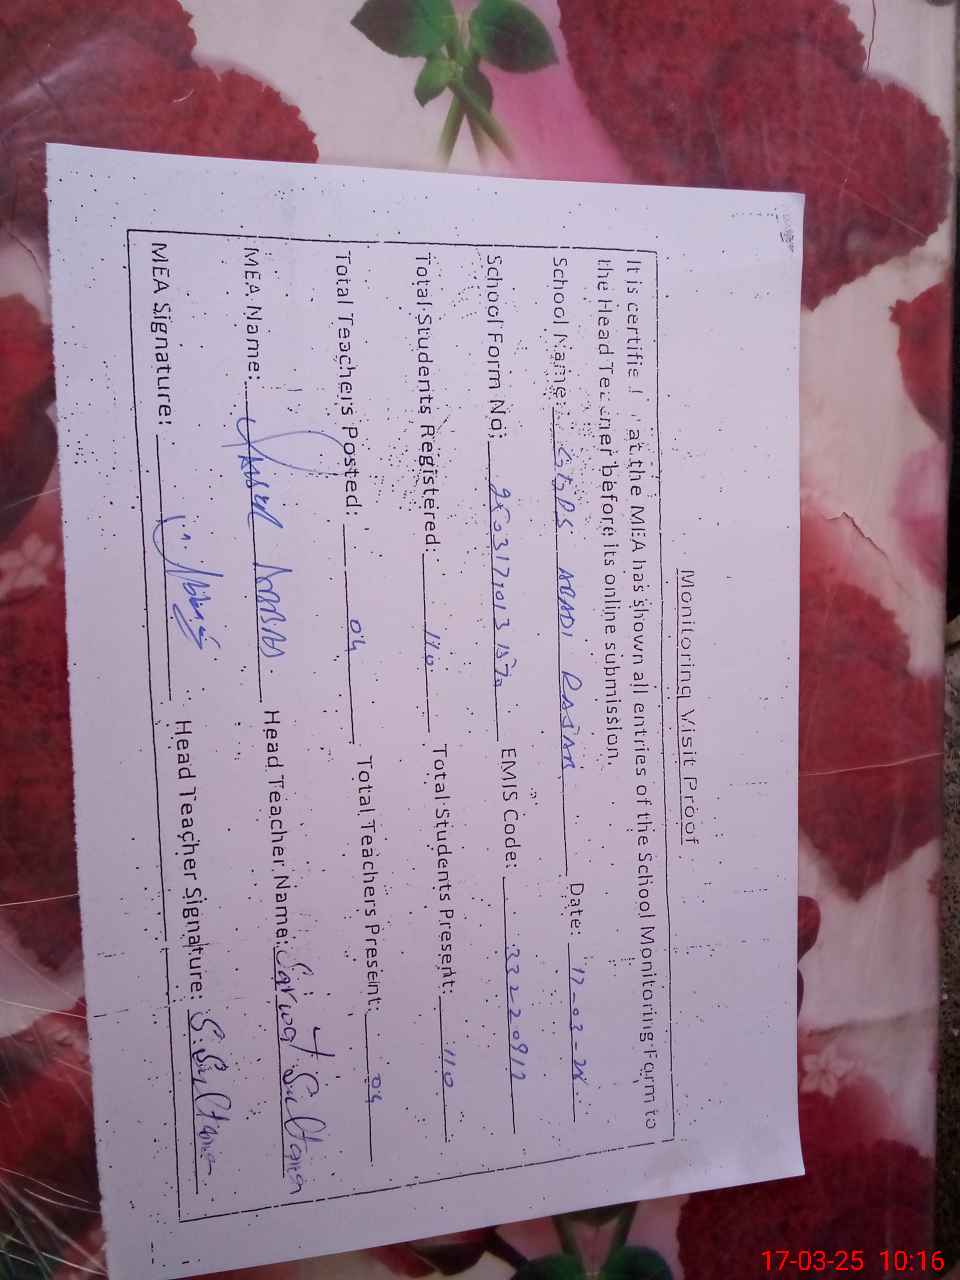 Monitoring Visit Proof
It is certified that the MEA has shown all entries of the School Monitoring Form to
the Head Teacher before its online submission.
School Name: GGPS ABADI RAJAB Date: 17-03-25
School Form No: EMIS Code: 33220917
Total Students Registered: Total Students Present: 110
Total Teachers Posted: 04 Total Teachers Present: 04
MEA Name: Abbas Head Teacher Name: Sarwat Sultana
MEA Signature: Head Teacher Signature: S. Sultana
17-03-25 10:16